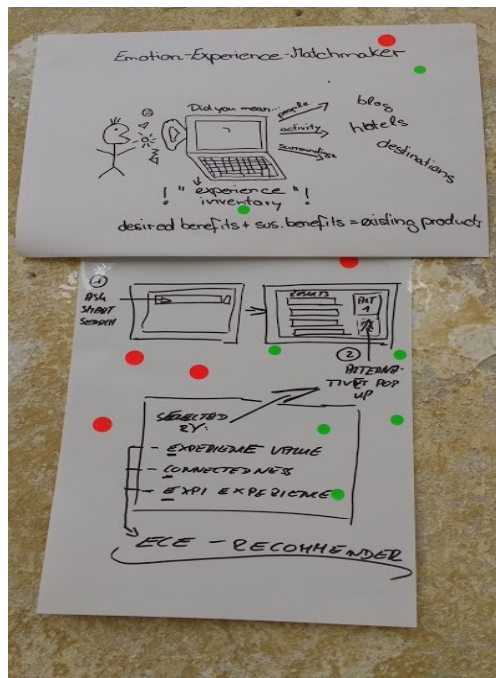 Emotion-Experience-Matchmaker
Did you mean...
people
activity
surroundings
blog
hotels
destinations
?
! "experience"!
inventory
desired benefits + sus. benefits = existing products
1
ASK
SMART
SEARCH
RESULTS
ALT
1
2
ALTERNA-
TIVES POP
UP
SELECTED
BY:
- EXPERIENCE VALUE
- CONNECTEDNESS
- EXPI EXPERIENCE
ECE - RECOMMENDER